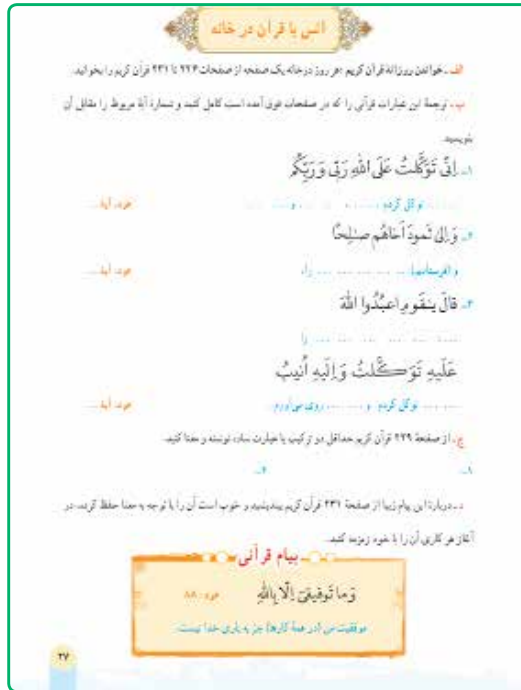 انس با قرآن در خانه
الف ـ خواندن روزانهٔ قرآن کریم: هر روز در خانه یک صفحه از صفحات ۲۲۴ تا ۲۳۱ قرآن کریم را بخوانید.
ب ـ ترجمهٔ این عبارات قرآنی را که در صفحات فوق آمده است کامل کنید و شمارهٔ آیهٔ مربوط را مقابل آن
بنویسید.
۱ـ اِنّی تَوَکَّلتُ عَلَی اللّٰهِ رَبّی وَ رَبِّکُم
توکل کردم ... و ... هود، آیهٔ ...
۲ـ وَ اِلیٰ ثَمودَ اَخاهُم صٰلِحًا
و (فرستادیم) ... را. هود، آیهٔ ...
۳ـ قالَ یٰقَومِ اعبُدُوا اللّٰهَ
... را
عَلَیهِ تَوَکَّلتُ وَ اِلَیهِ اُنیبُ
... توکل کردم و ... روی می‌آورم. هود، آیهٔ ...
ج ـ از صفحهٔ ۲۲۹ قرآن کریم حداقل دو ترکیب یا عبارت ساده نوشته و معنا کنید.
۱ـ ۲ـ
د ـ دربارهٔ این پیام زیبا از صفحهٔ ۲۳۱ قرآن کریم بیندیشید و خوب است آن را با توجه به معنا حفظ کرده، در
آغاز هر کاری آن را با خود زمزمه کنید.
پیام قرآنی
وَ ما تَوفیقی اِلّا بِاللّٰهِ هود، ۸۸
موفقیت من (در همهٔ کارها) جز به یاری خدا نیست.
۲۷